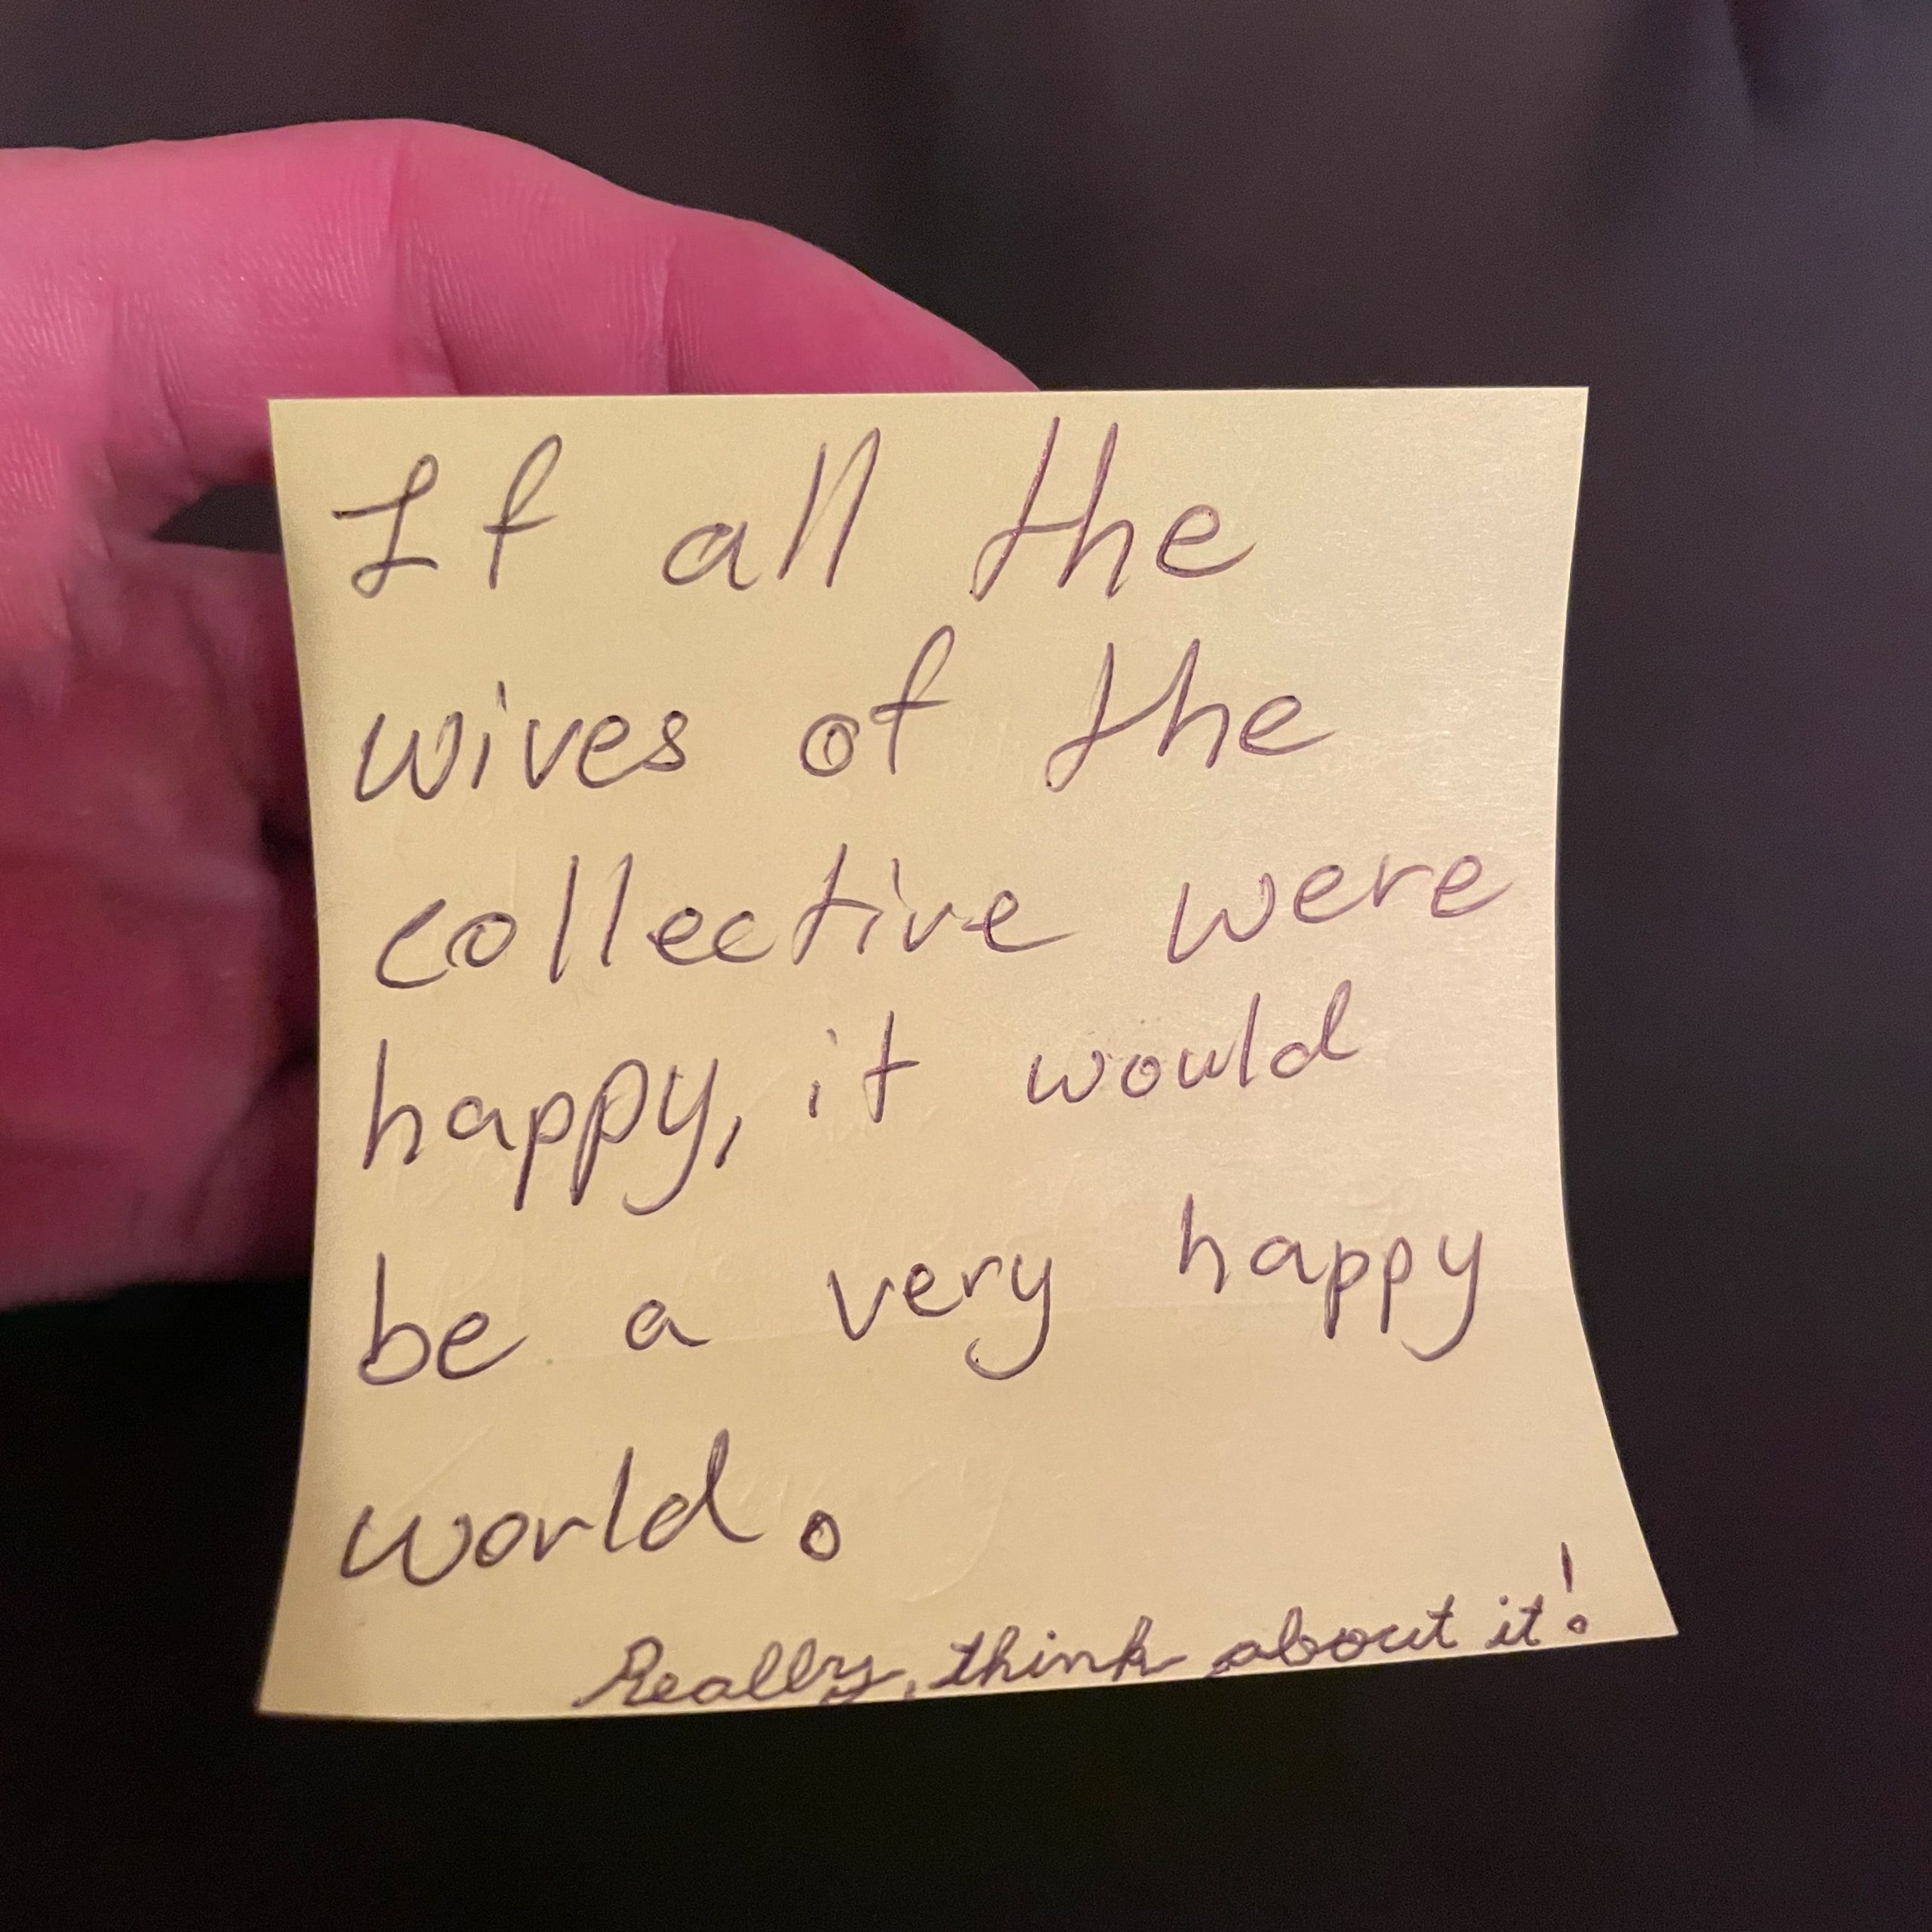 If all the
wives of the
collective were
happy, it would
be a very happy
world.
Really, think about it!